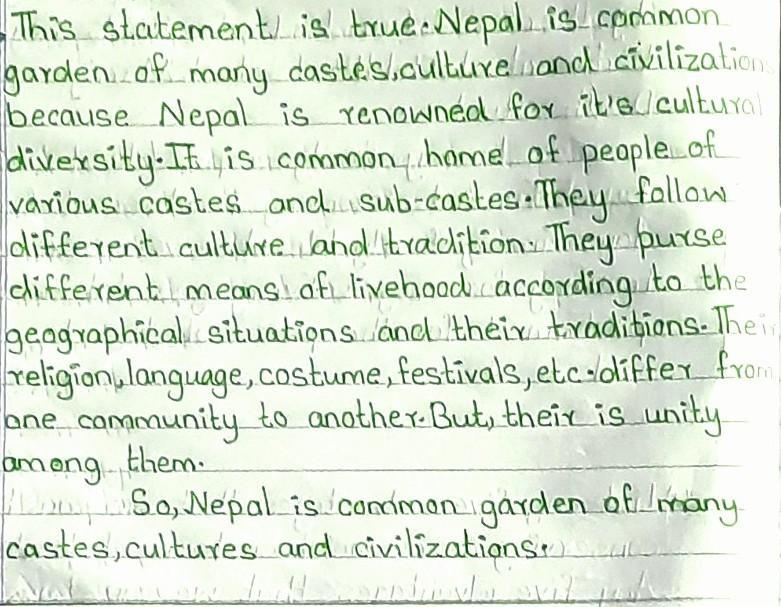 This statement is true. Nepal is common
garden of many castes, culture and civilization
because Nepal is renowned for it's cultural
diversity. It is common home of people of
various castes and sub-castes. They follow
different culture and tradition. They purse
different means of livehood according to the
geographical situations and their traditions. Their
religion, language, costume, festivals, etc. differ from
one community to another. But, their is unity
among them.
So, Nepal is common garden of many
castes, cultures and civilizations.